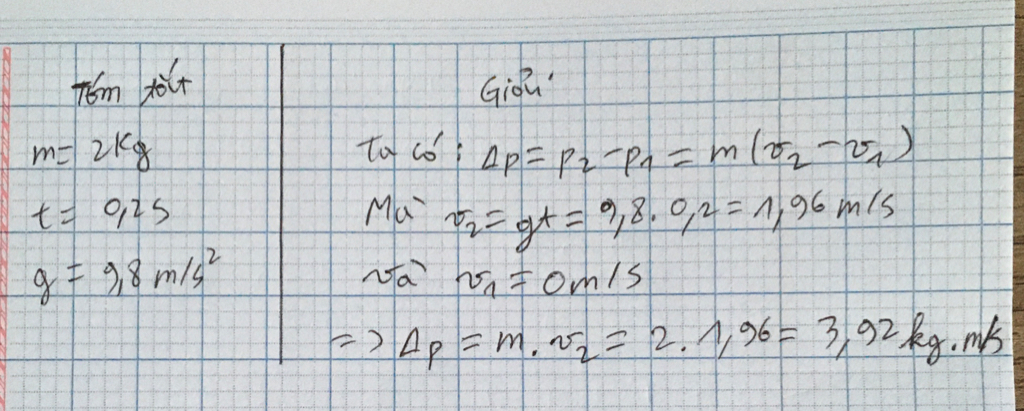 Tóm tắt
m= 2kg
t= 0,2s
g = 9,8 m/s²
Giải
Ta có: Δp = p₂ - p₁ = m(v₂ - v₁)
Mà v₂ = gt = 9,8. 0,2 = 1,96 m/s
và v₁ = 0m/s
=> Δp = m. v₂ = 2. 1,96 = 3,92 kg.m/s